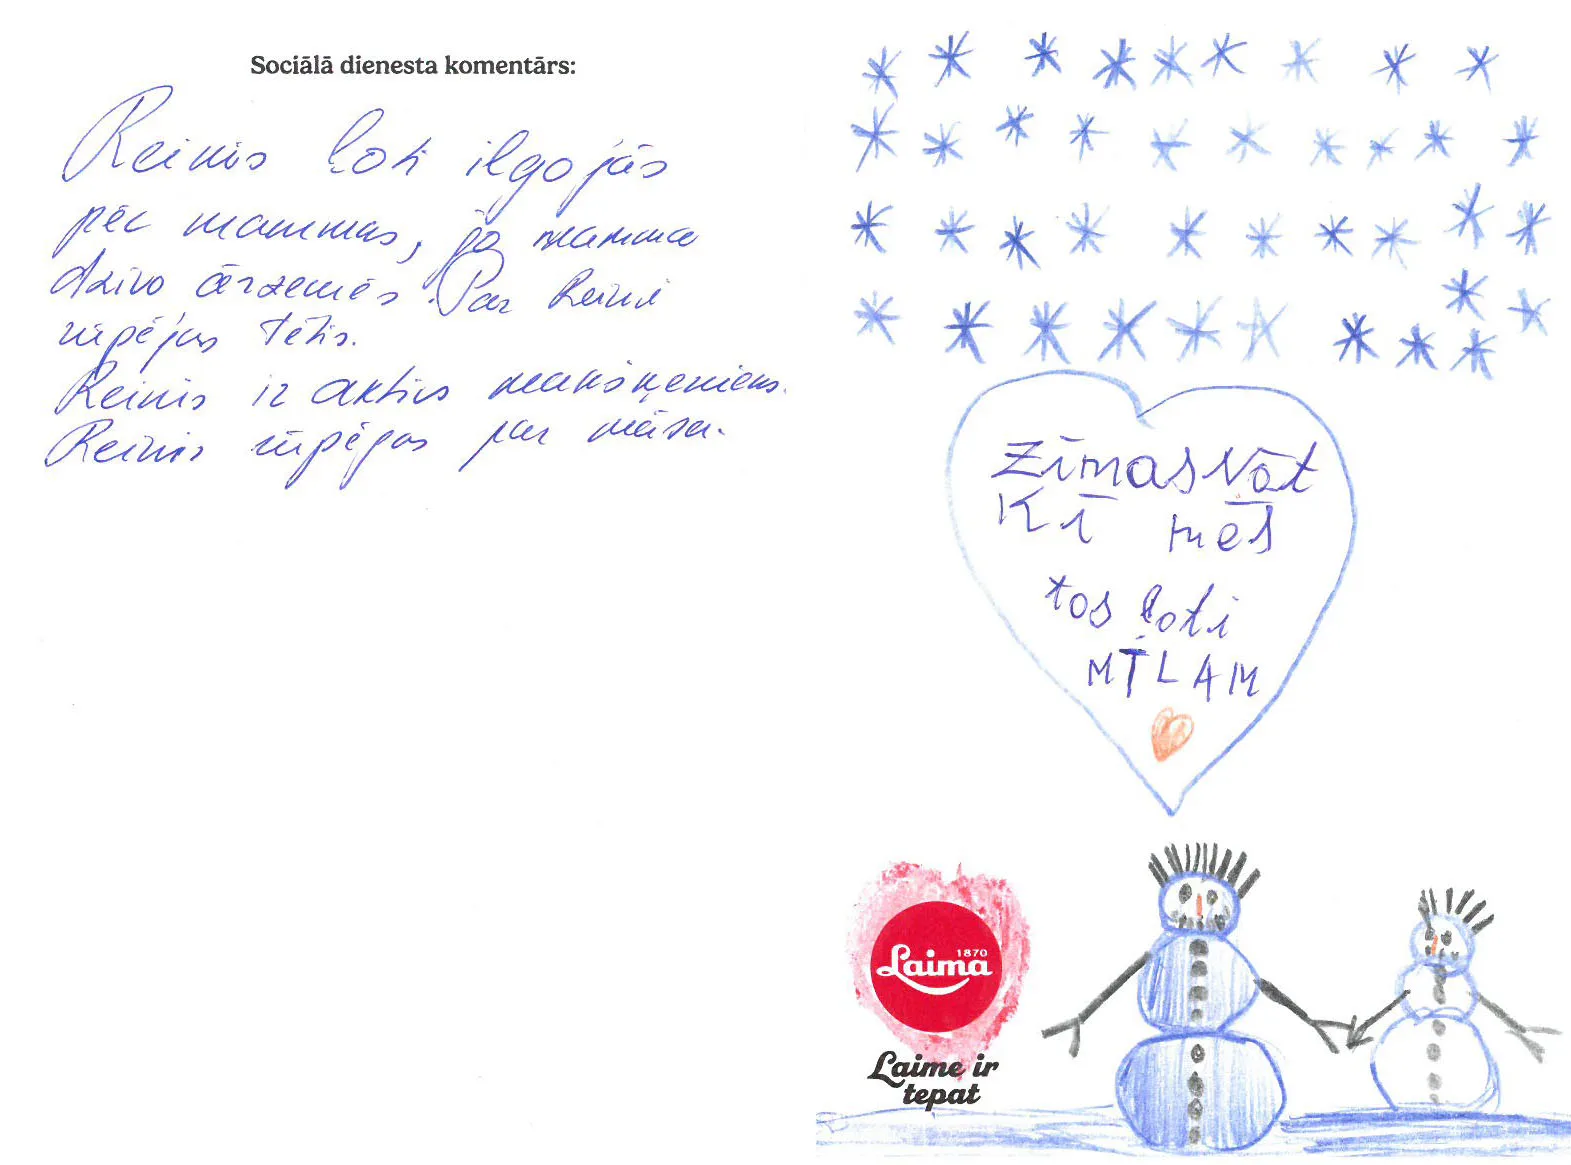 Sociālā dienesta komentārs:
Reinis ļoti ilgojās
pēc mammas, jo mamma
dzīvo ārzemēs. Par Reini
rūpējas tētis.
Reinis ir aktīvs makšķernieks.
Reinis rūpējas par māsu.
Zīmasvōt
Kī mēs
tos ļoti
MĪLAM
Laima
1870
Laime ir
tepat